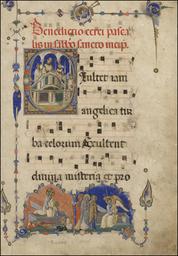 Benedictio cerei pasca
lis in sabbo sancto incip.
Exultet iam
angelica tur
ba celorum Exultent
divina misteria et pro